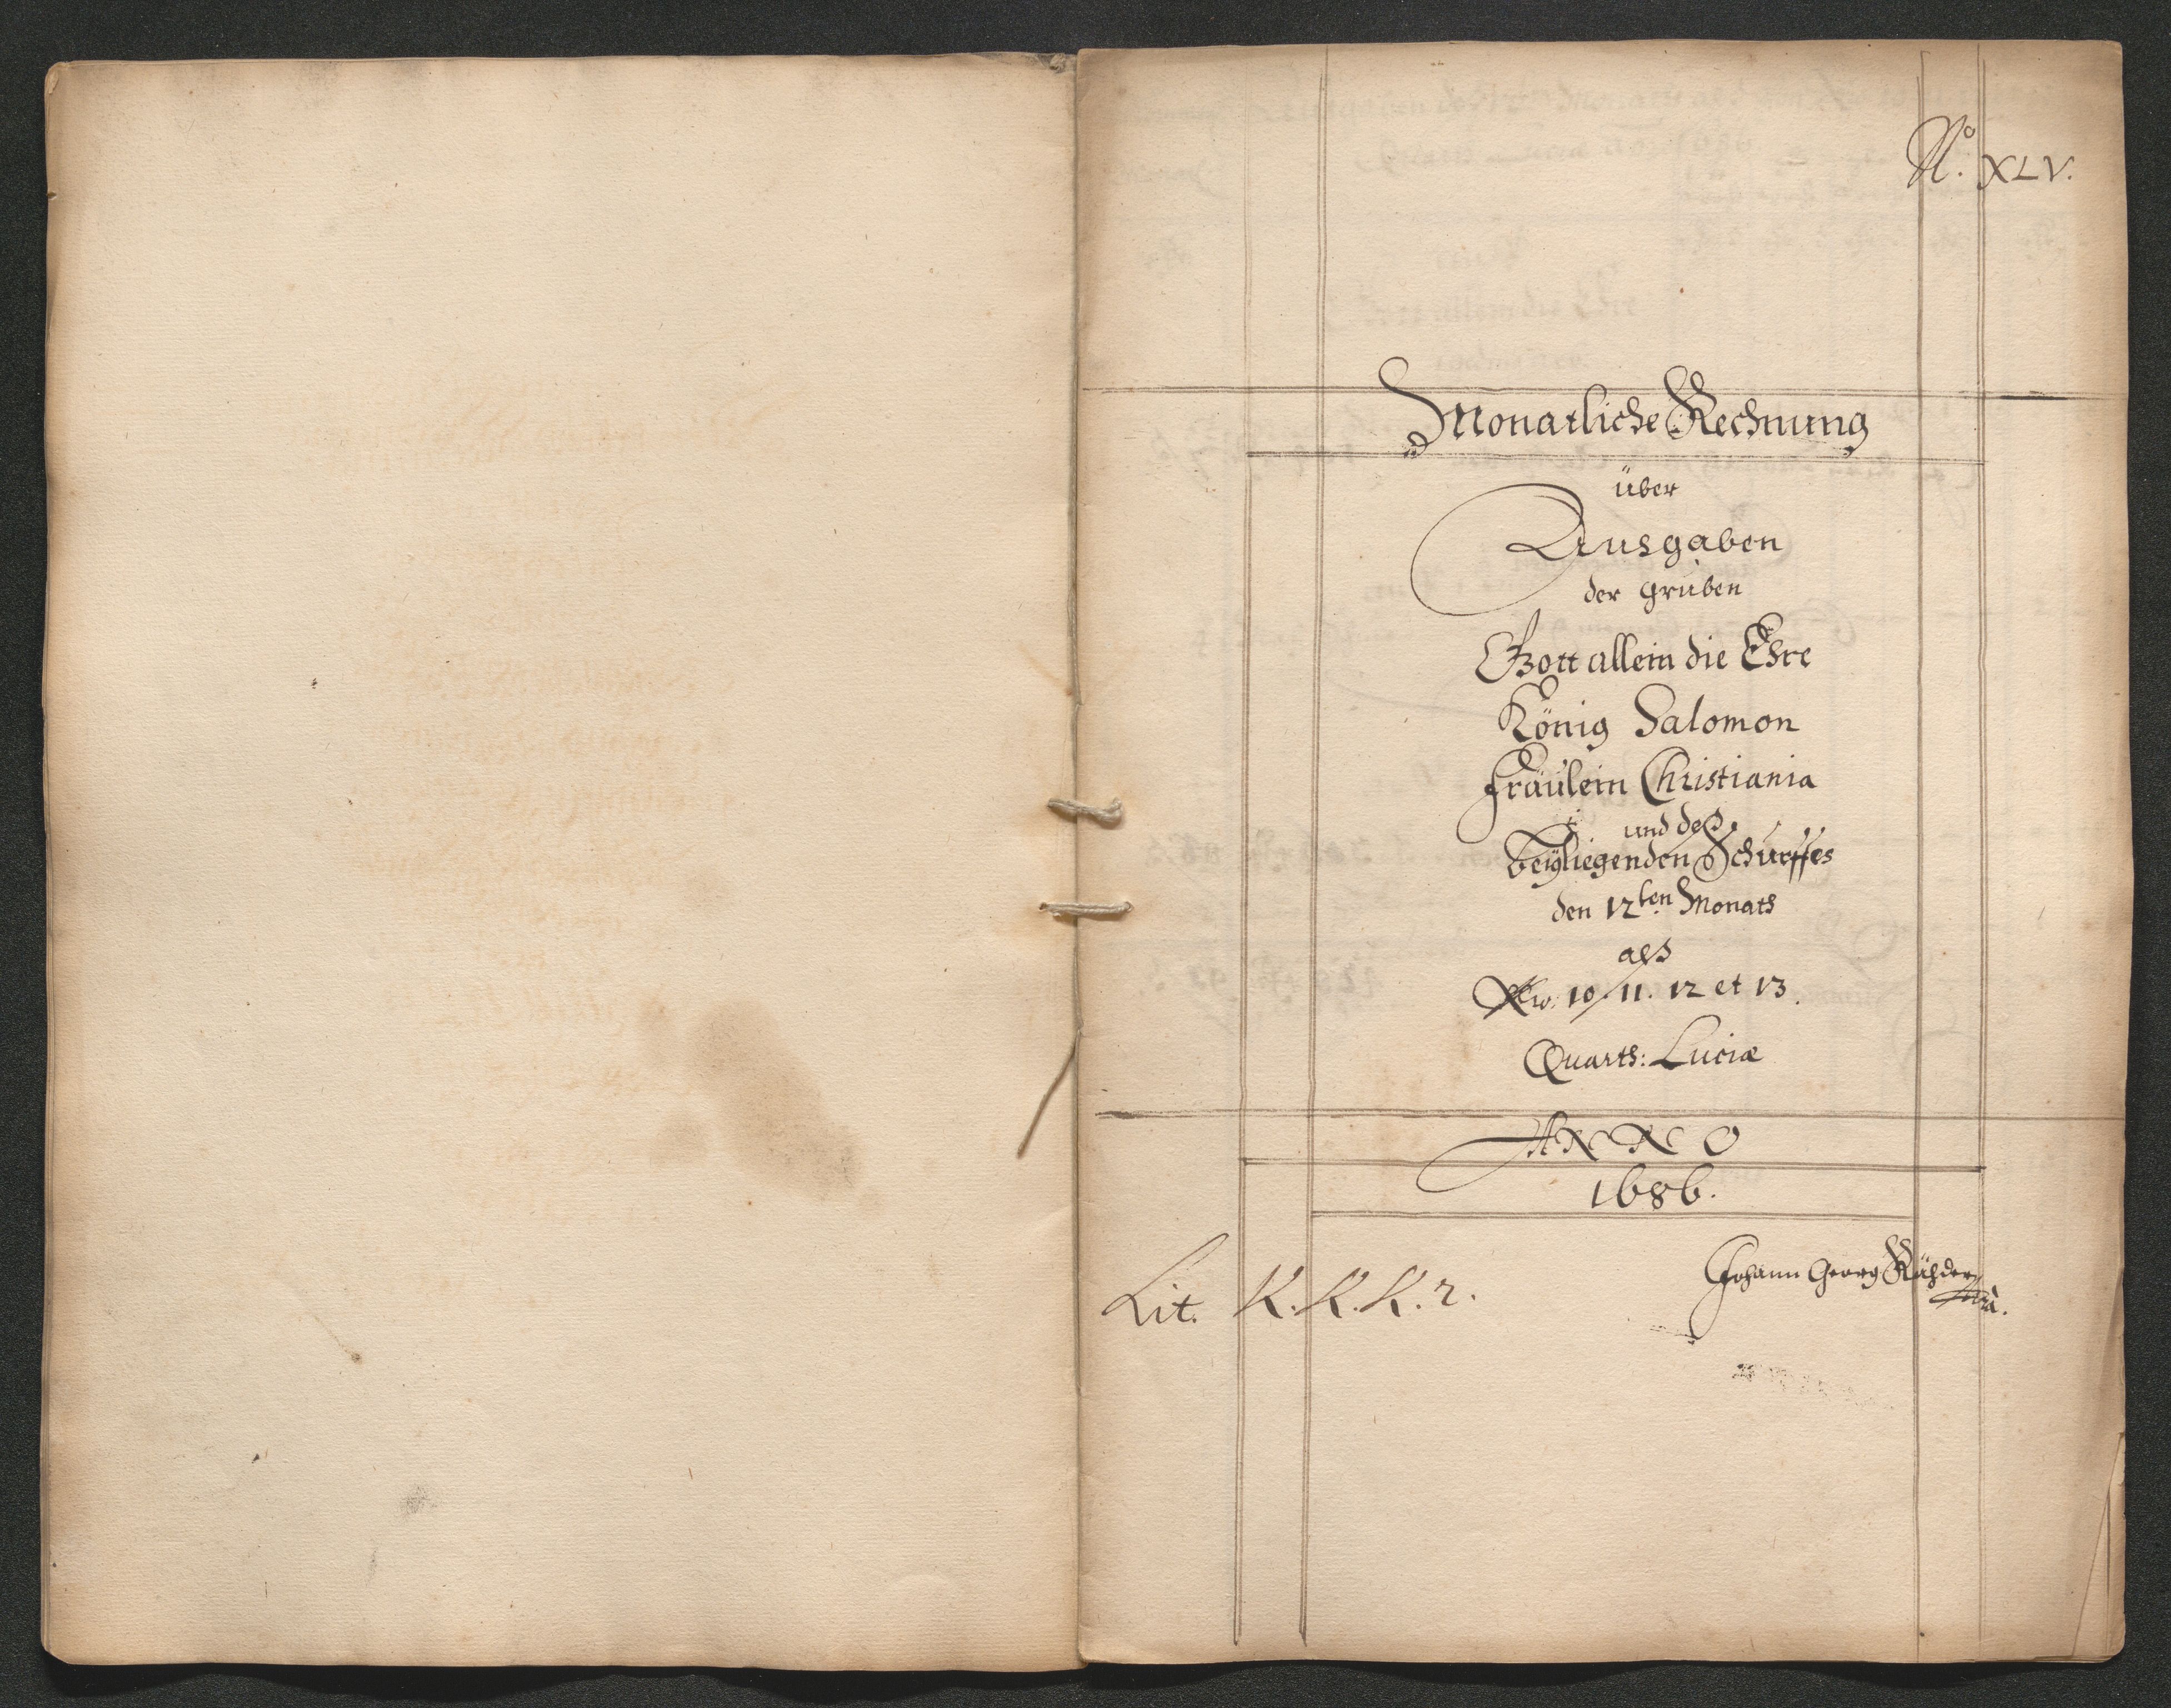 No. XLV.
Monatliche Rechnung
über
Ausgaben
der gruben
Gott allein die Ehre
König Salomon
Fräulein Christiania
und deß
beÿliegenden Schurffes
den 12ten Monats
alß
No: 10. 11. 12 et 13.
Quarts: Luciæ
ANNO
1686.
Johann Georg
Lit. K. K. K. 2.